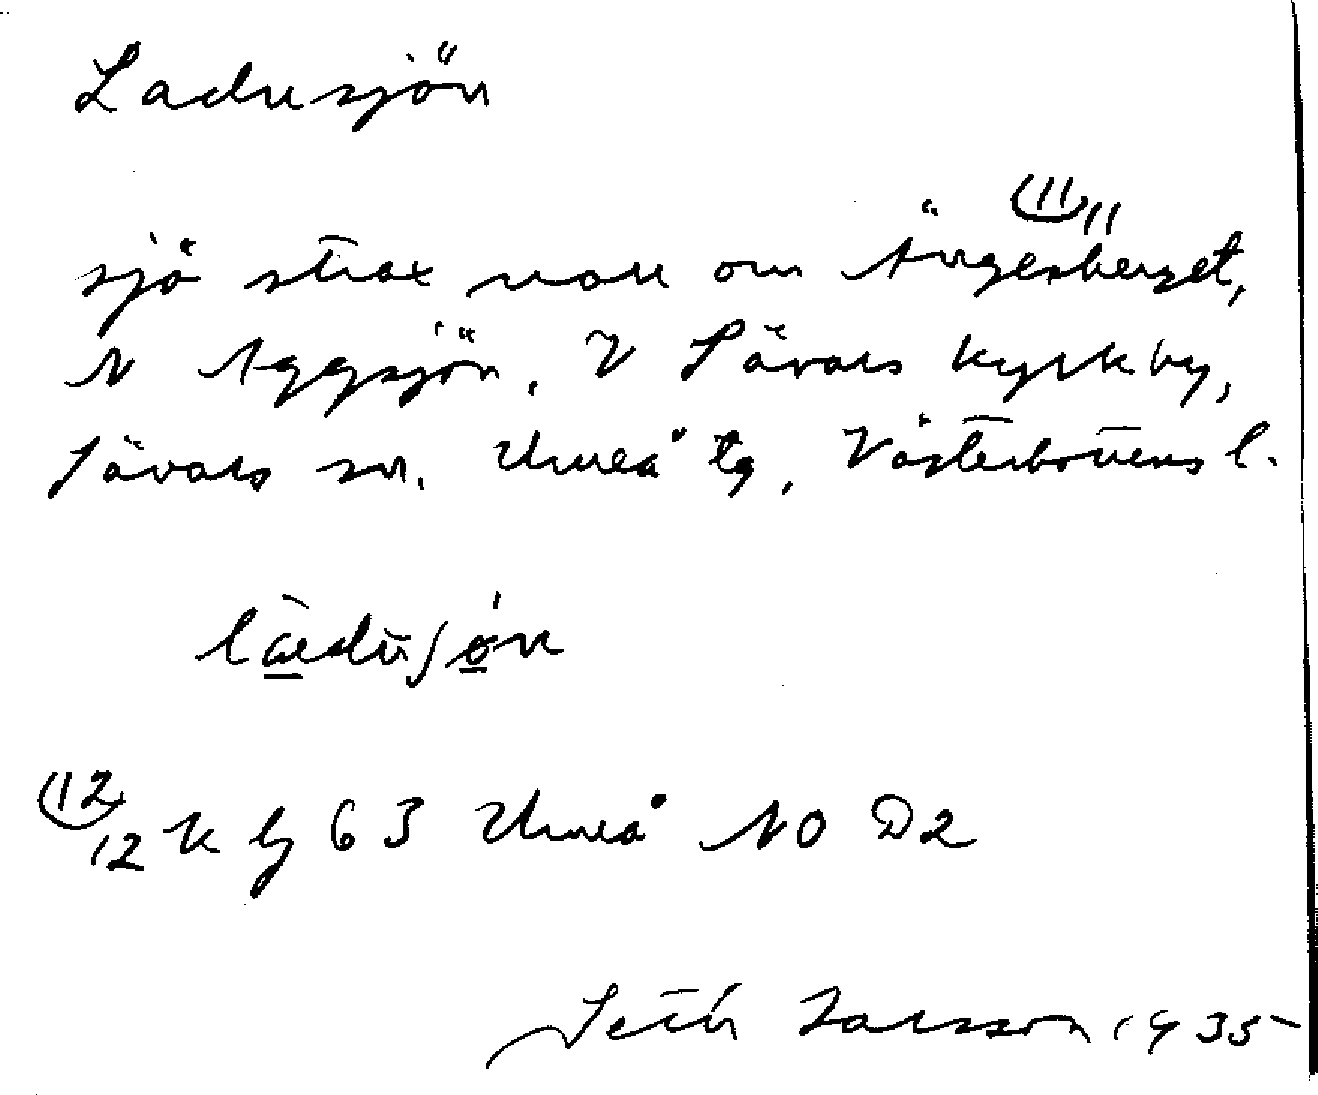 Ladusjön
(11
sjö strax norr om Ängesberget, 11
N Aggsjön, V Sävars kyrkby,
Sävars sn. Umeå tg, Västerbottens l.
(12
12 k bl 63 Umeå NO D2
Seth Larsson 1935